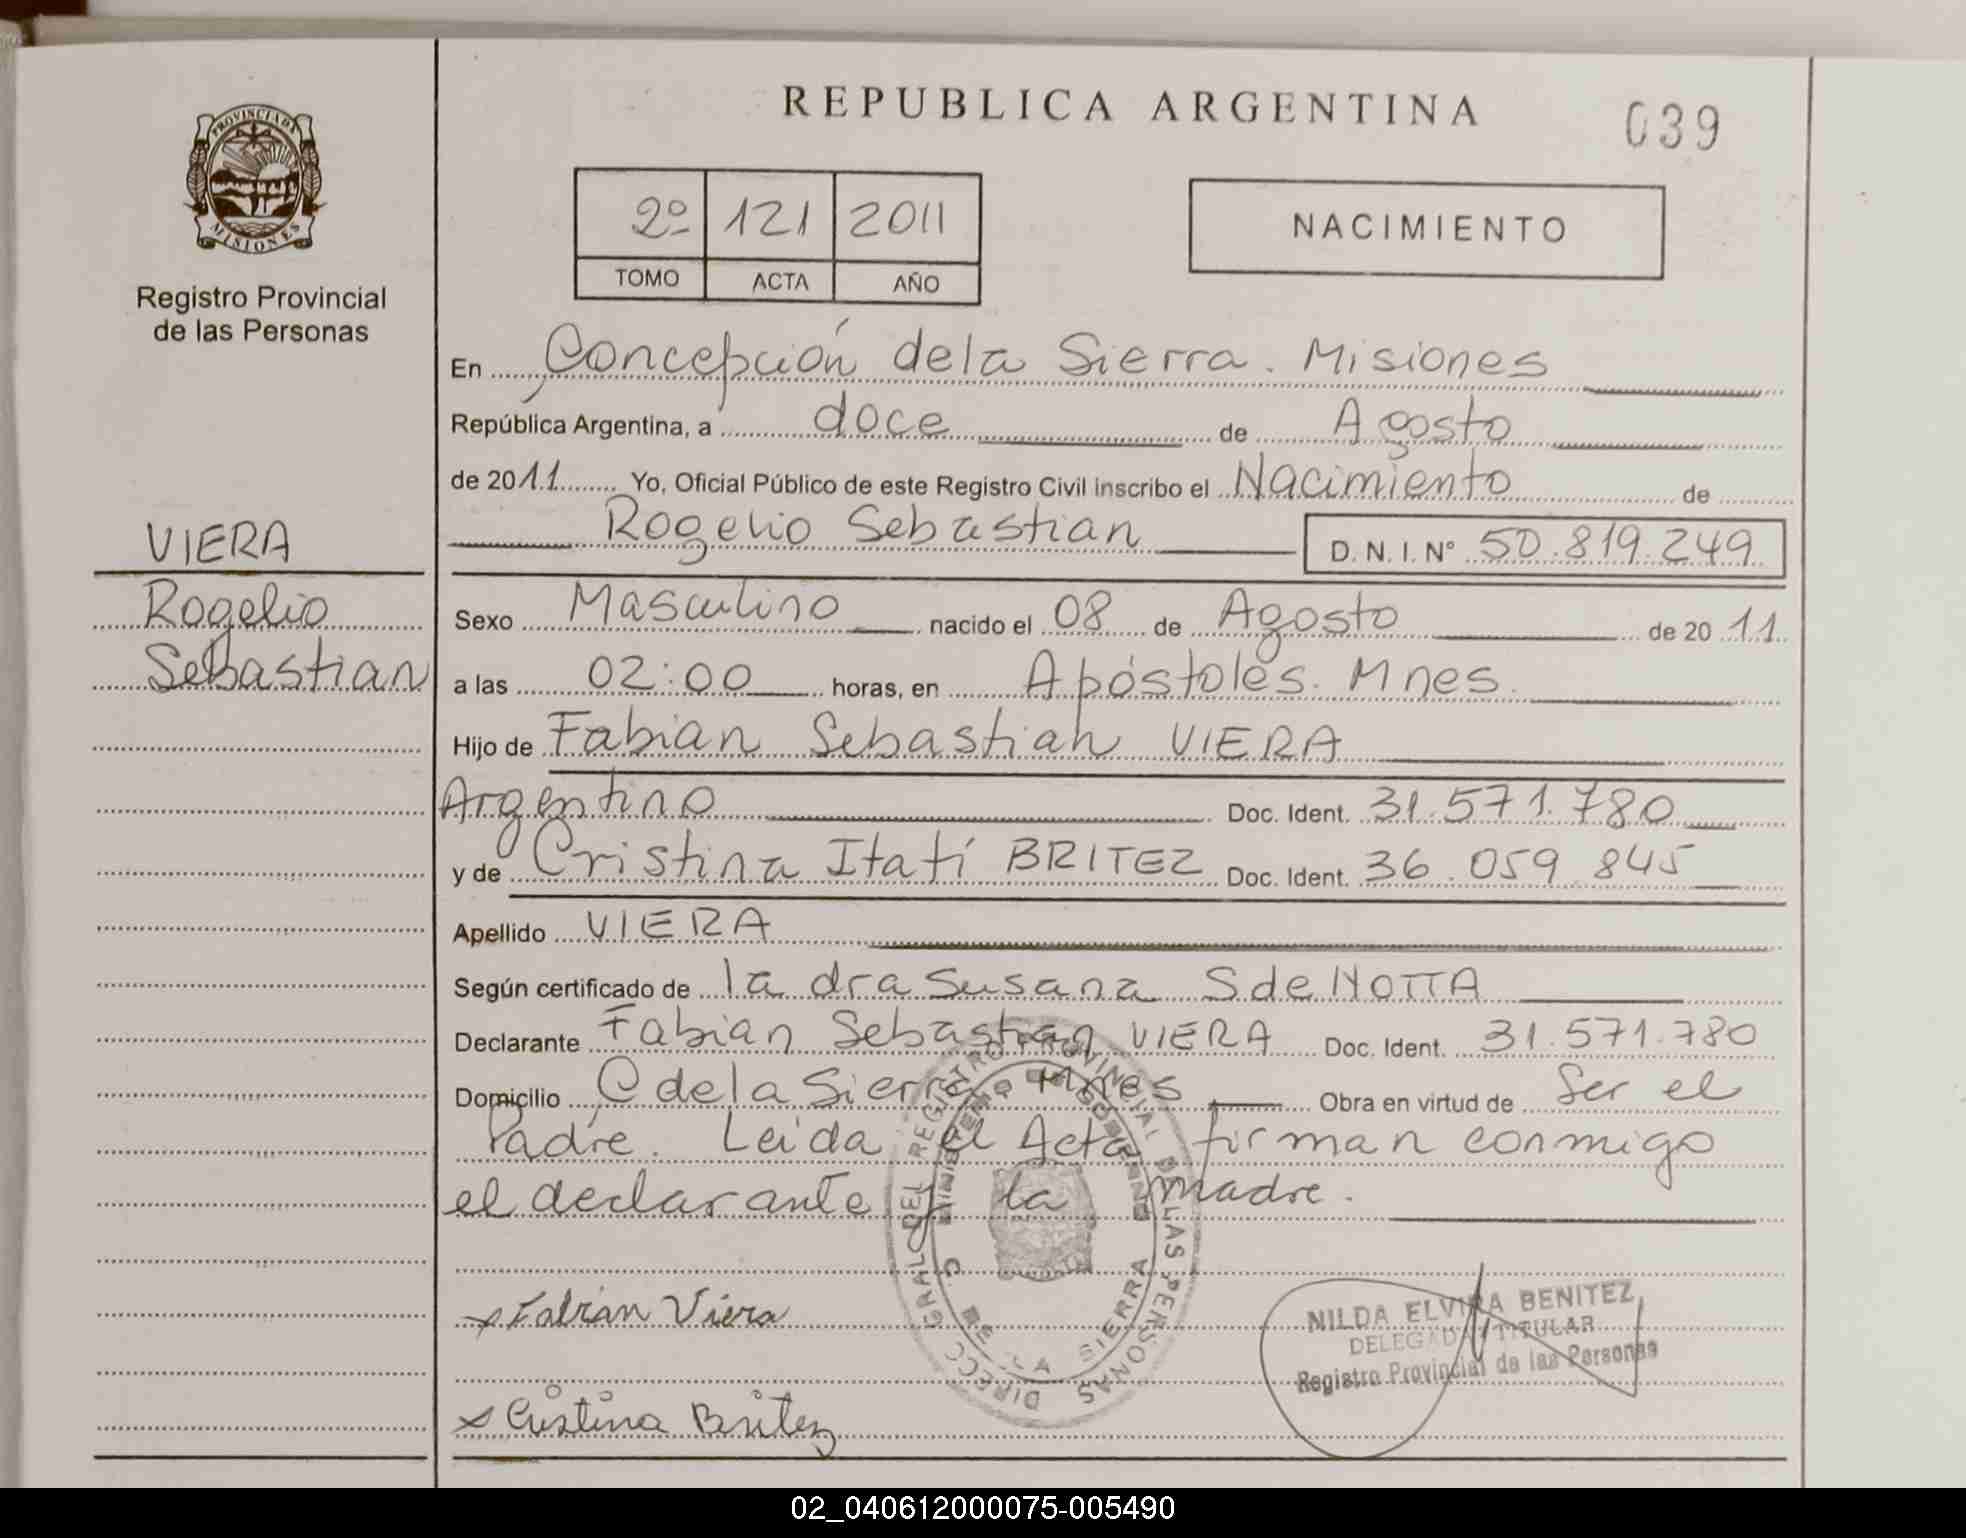 PROVINCIA DA
MISIONES
Registro Provincial
de las Personas
VIERA
Rogelio
Sebastian
REPUBLICA ARGENTINA
039
2º 121 2011
TOMO ACTA AÑO
NACIMIENTO
En Concepción dela Sierra. Misiones
República Argentina, a doce de Agosto
de 2011 Yo, Oficial Público de este Registro Civil inscribo el Nacimiento de
Rogelio Sebastian D. N. I. N° 50.819.249
Sexo Masculino nacido el 08 de Agosto de 2011
a las 02:00 horas, en Apóstoles. Mnes.
Hijo de Fabian Sebastian VIERA
Argentino Doc. Ident. 31.571.780
y de Cristina Itatí BRITEZ Doc. Ident. 36.059.845
Apellido VIERA
Según certificado de la dra Susana S de NOTTA
Declarante Fabian Sebastian VIERA Doc. Ident. 31.571.780
Domicilio C de la Sierra Mnes Obra en virtud de Ser el
Padre. Leida el Acta firman conmigo
el declarante y la madre.
DIRECC GRAL DEL REGISTRO PROVINCIAL DE LAS PERSONAS
MINISTERIO DE GOBIERNO
C DE LA SIERRA
x Fabian Viera
NILDA ELVIRA BENITEZ
DELEGADA TITULAR
Registro Provincial de las Personas
x Cristina Britez
02_040612000075-005490